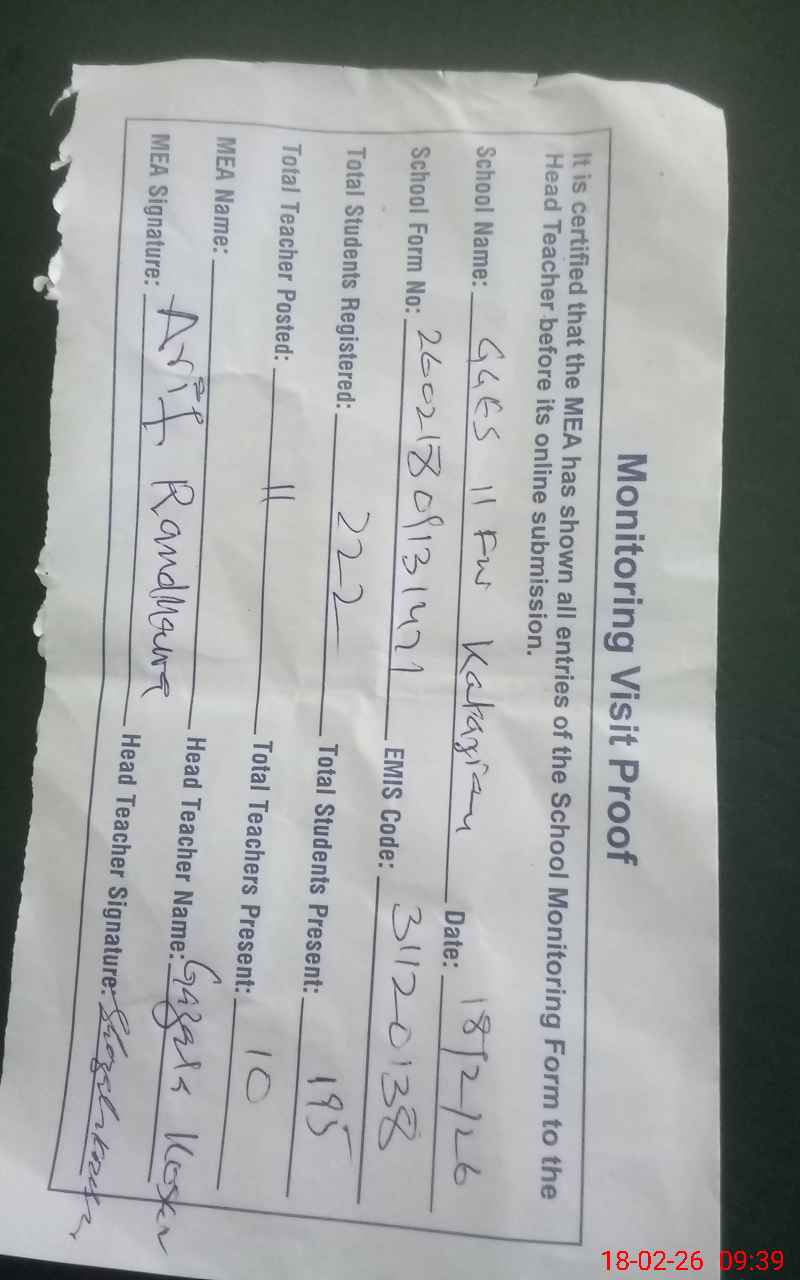 Monitoring Visit Proof
It is certified that the MEA has shown all entries of the School Monitoring Form to the
Head Teacher before its online submission.
School Name: GGES 11 FW Date: 18/2/26
School Form No: EMIS Code: 31120138
Total Students Registered: 222 Total Students Present: 195
Total Teacher Posted: 11 Total Teachers Present: 10
MEA Name: Arif Randhawa Head Teacher Name: Gazala Kosar
MEA Signature: Head Teacher Signature:
18-02-26 09:39